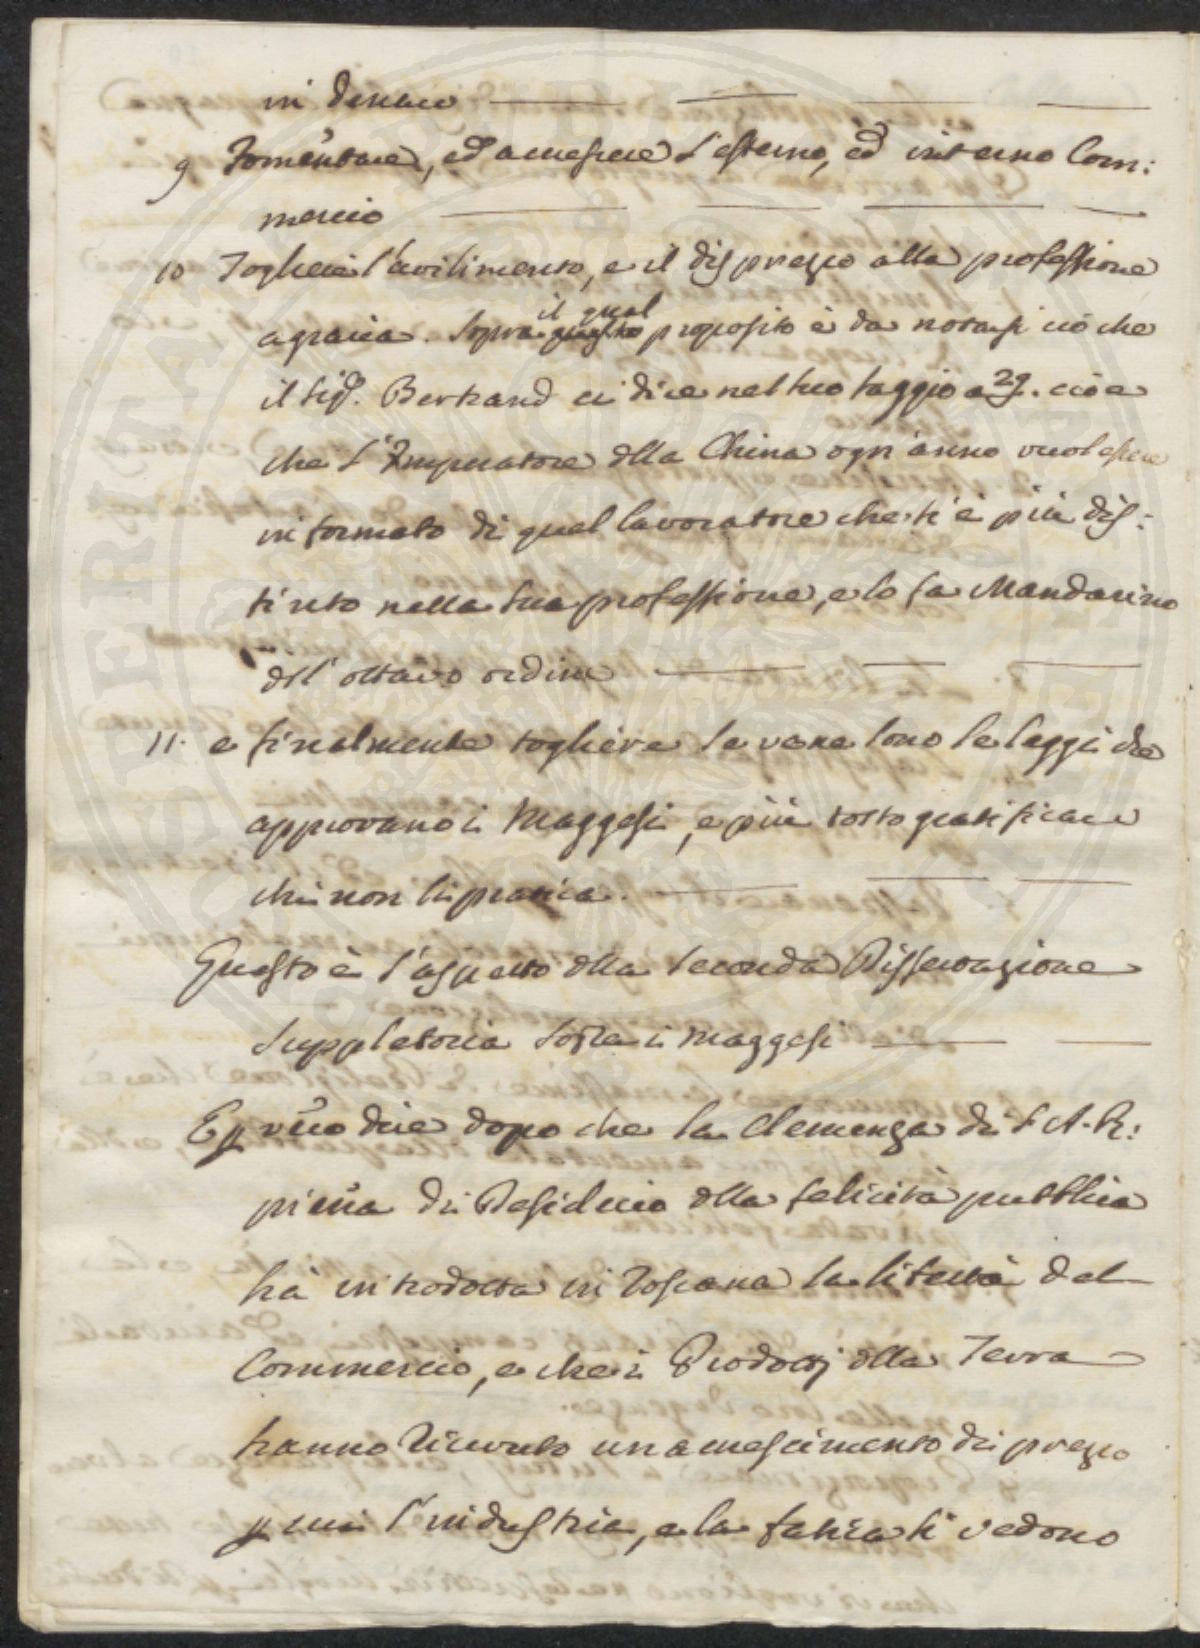 in denaro
9 Fomentare, ed accrescere l'esterno, ed interno Com:
mercio
10 Togliere l'avilimento, e il disprezzo alla professione
agraria. Sopra il qual questo proposito è da notarsi ciò che
il Sigr. Bertrand ci dice nel suo saggio a 29. cioè
che l'Imperatore dlla China ogn'anno vuol essere
informato di quel lavoratore che si è più dis:
tinto nella sua professione, e lo fa Mandarino
dell'ottavo ordine
11. e finalmente togliere se vene sono le leggi che
approvano i Maggesi, e più tosto gratificare
chi non li pratica.
Questo è l'aspetto dlla seconda Dissertazione
suppletoria sopra i maggesi
E p vero dire dopo che la Clemenza di S. A. R:
piena di Desiderio dlla felicità pubblica
hà introdotta in Toscana la libertà del
Commercio, e che i Prodotti dlla Terra
hanno ricevuto un accrescimento di prezzo
p cui l'industria, e la fatica si vedono